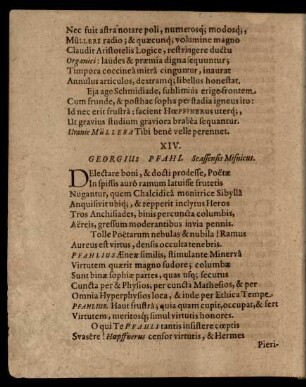 Nec fuit astra notare poli, numerosq́; modosq́;,
MüLLERI radio; & quæcunq́, volumine magno
Claudit Aristotelis Logice, restringere ductu
Organici: laudes & præmia digna sequuntur;
Timpora coccineâ mitrâ cinguntur, inaurat
Annulus articulos, dextramq́; libellus honestat.
Eja age Schmidiade, sublimius erige frontem.
Cum frunde, & posthac sophs per stadia igneus ito:
Id nec erit frustrâ: facient HŒPFNERUS uterq́;,
Ut gravius studium graviora brabêa sequantur.
Uranie MüLLERA Tibi benè velle perennet.
XIV.
GEORGIUS PFAHL Scassensis Misnicus.
DElectare boni, & docti prodesse, Poëtæ
In spissis aurô ramum latuisse frutetis
Nugantur, quem Chalcidicâ monitrice Sibyllâ
Anquisivit ubiq́;, & repperit inclytus Heros
Tros Anchisiades, binis percuncta columbis,
Aëreis, gressum moderantibus invia pennis.
Tolle Poëtarum nebulas & nubila! Ramus
Aureus est virtus, densis occulta tenebris.
PFAHLIUS Æneæ similis, stimulante Minervâ
Virtutem quærit magno sudore; columbæ
Sunt binæ sophiæ partes, quas usq́; secutus
Cuncta per & Physios, per cuncta Mathesios, & per
Omnia Hyperphysios loca, & inde per Ethica Tempe.
PFAHLIUS. Haut frustrâ; quia quam cupit, occupat, & fert
Virtutem, meritosq́; simul virtutis honores.
O qui Te PFAHLI tantis insistere cœptis
Svasêre! Hœpffnerus censor virtutis, & Hermes
Pieri-